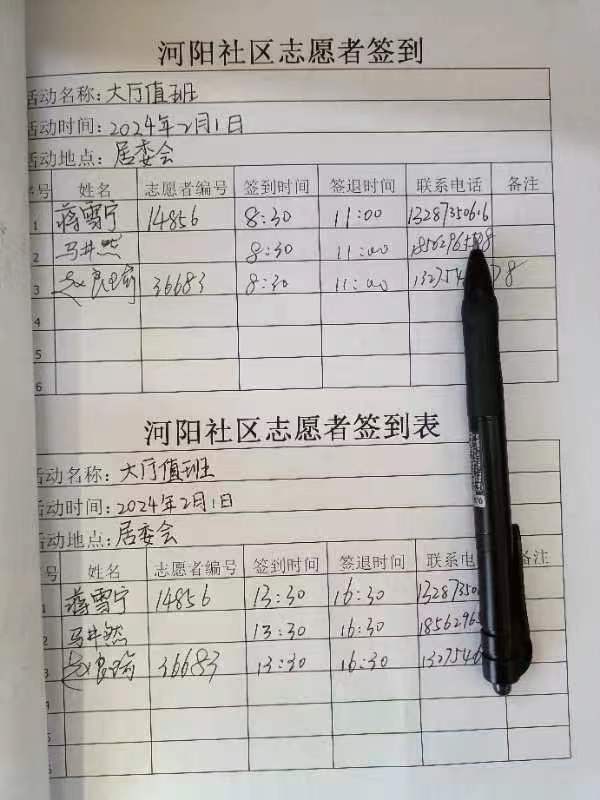 河阳社区志愿者签到
活动名称：大厅值班
活动时间：2024年2月1日
活动地点：居委会
序号 姓名 志愿者编号 签到时间 签退时间 联系电话 备注
1 蒋雪宁 14856 8:30 11:00
2 马井然 8:30 11:00
3 36683 8:30 11:00
4
5
6
河阳社区志愿者签到表
活动名称：大厅值班
活动时间：2024年2月1日
活动地点：居委会
号 姓名 志愿者编号 签到时间 签退时间 联系电话 备注
1 蒋雪宁 14856 13:30 16:30 13287350
2 马井然 13:30 16:30 1856296
3 36683 13:30 16:30 132754
4
5